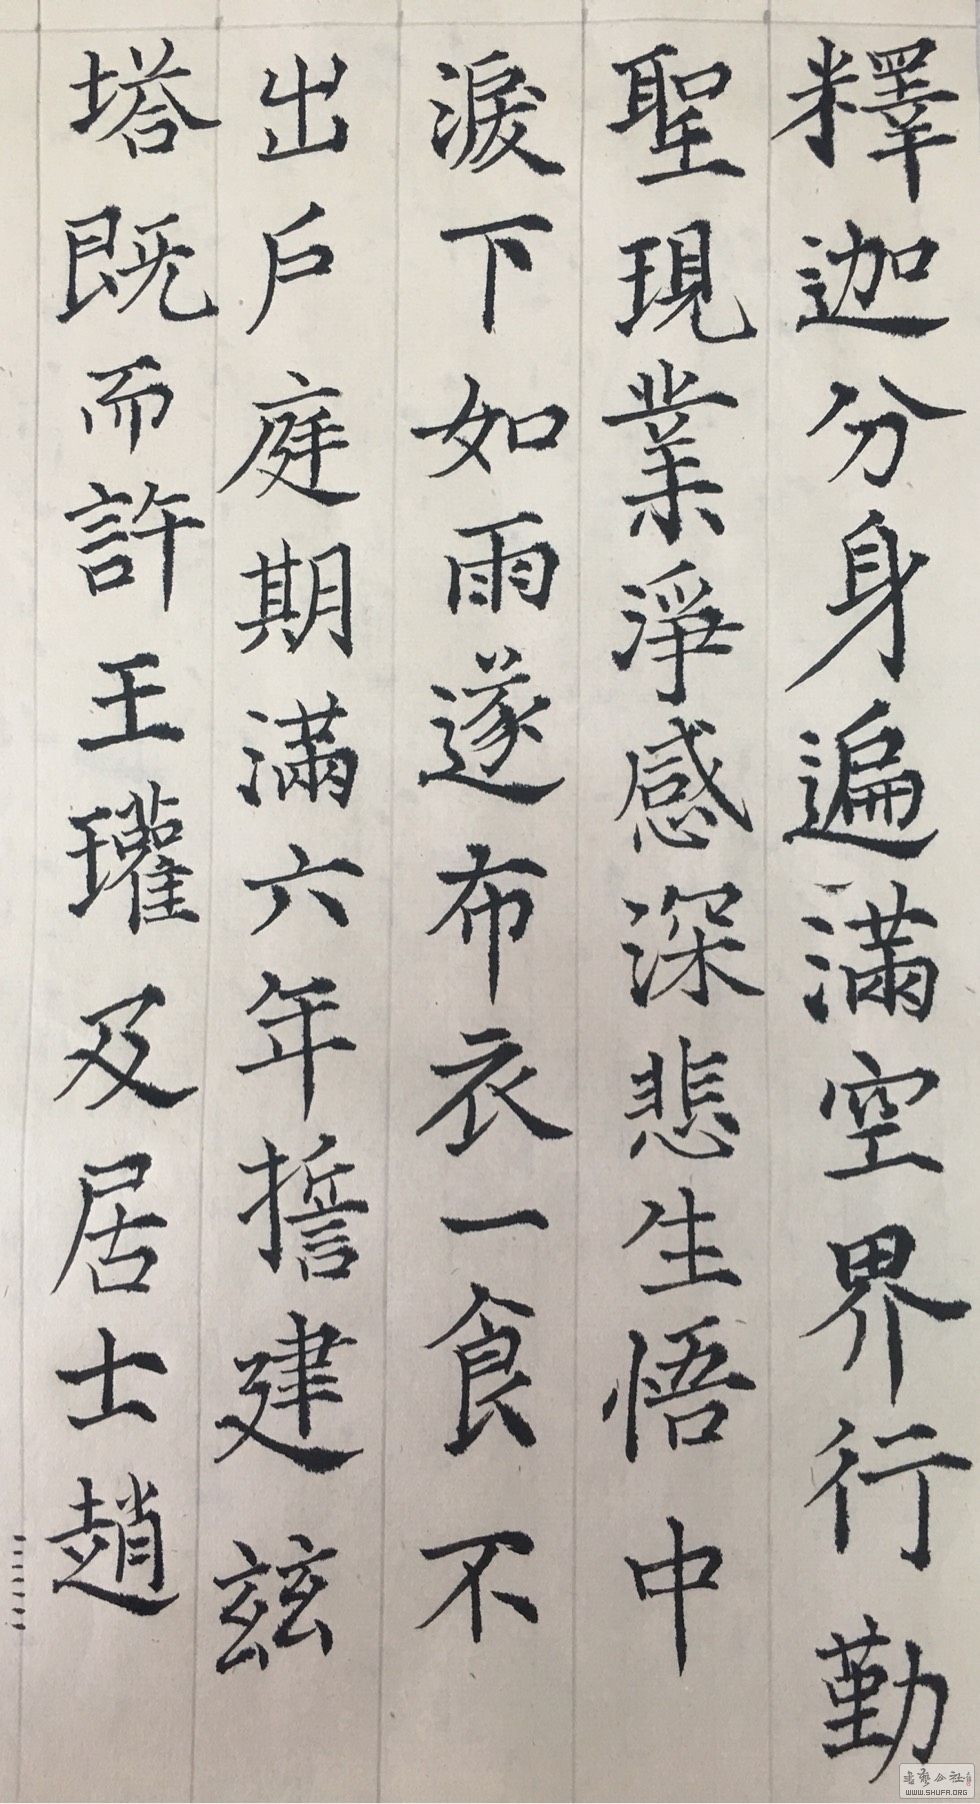 釋迦分身遍滿空界行勤
聖現業淨感深悲生悟中
淚下如雨遂布衣一食不
出戶庭期滿六年誓建茲
塔既而許王瓘及居士趙
書藝公社
WWW.SHUFA.ORG